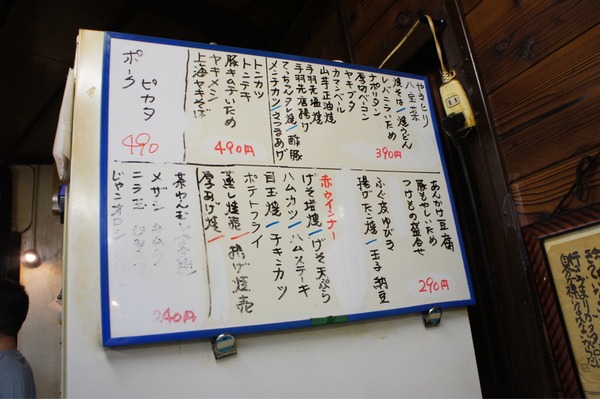 やきとり
八宝菜
焼そば/焼うどん
レバニライため
ナポリタン
厚切ベーコン
ヤキブタ
カマンベール
山芋正油焼
手羽先塩焼
手羽先唐揚げ
てっちゃんタレ焼/酢豚
メンチカツ/さつまあげ
390円
トンカツ
トンテキ
豚キムチいため
ヤキメシ
上海ヤキそば
490円
ポーク
ピカタ
490
あんかけ豆腐
豚もやしいため
つけもの盛合せ
290円
ふぐ皮ゆびき
揚げたこ焼/玉子納豆
赤ウインナー
げそ塩焼/げそ天ぷら
ハムカツ/ハムステーキ
目玉焼/チキンカツ
ポテトフライ
蒸し焼売/揚げ焼売
厚あげ焼/
茶わんむし
メザシ
ニラ玉
じゃこオロシ
240円